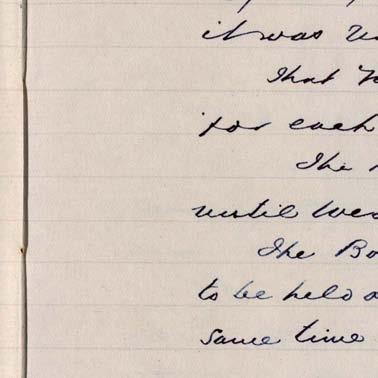 it was
that
for each
The
until
The
to be held
same time